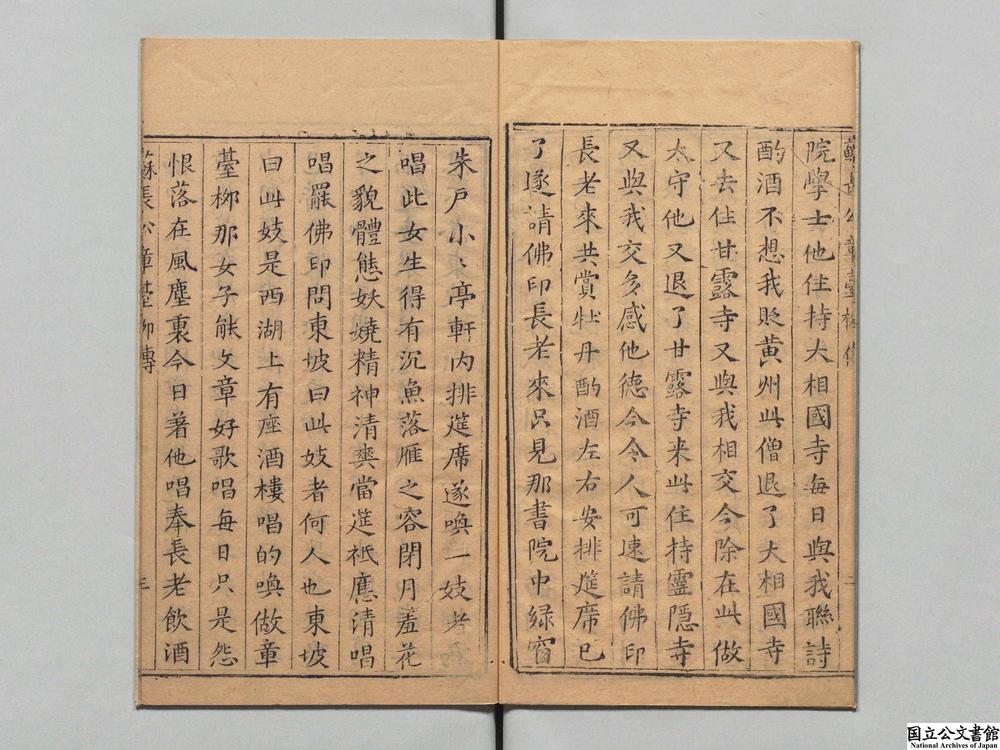 蘇長公章臺柳傳
院學士他住持大相國寺每日與我聯詩
酌酒不想我貶黄州此僧退了大相國寺
又去住甘露寺又與我相交今除在此做
太守他又退了甘露寺来此住持靈隠寺
又與我交多感他德今令人可速請佛印
長老來共賞牡丹酌酒左右安排筵席已
了遂請佛印長老來只見那書院中緑窗
朱戸小小亭軒内排筵席遂喚一妓者
唱此女生得有沉魚落雁之容閉月羞花
之貌體態妖嬈精神清爽當筵祗應清唱
唱罷佛印問東坡曰此妓者何人也東坡
曰此妓是西湖上有座酒樓唱的喚做章
臺柳那女子能文章好歌唱每日只是怨
恨落在風塵裏今日著他唱奉長老飲酒
蘇長公章臺柳傳
三
国立公文書館
National Archives of Japan